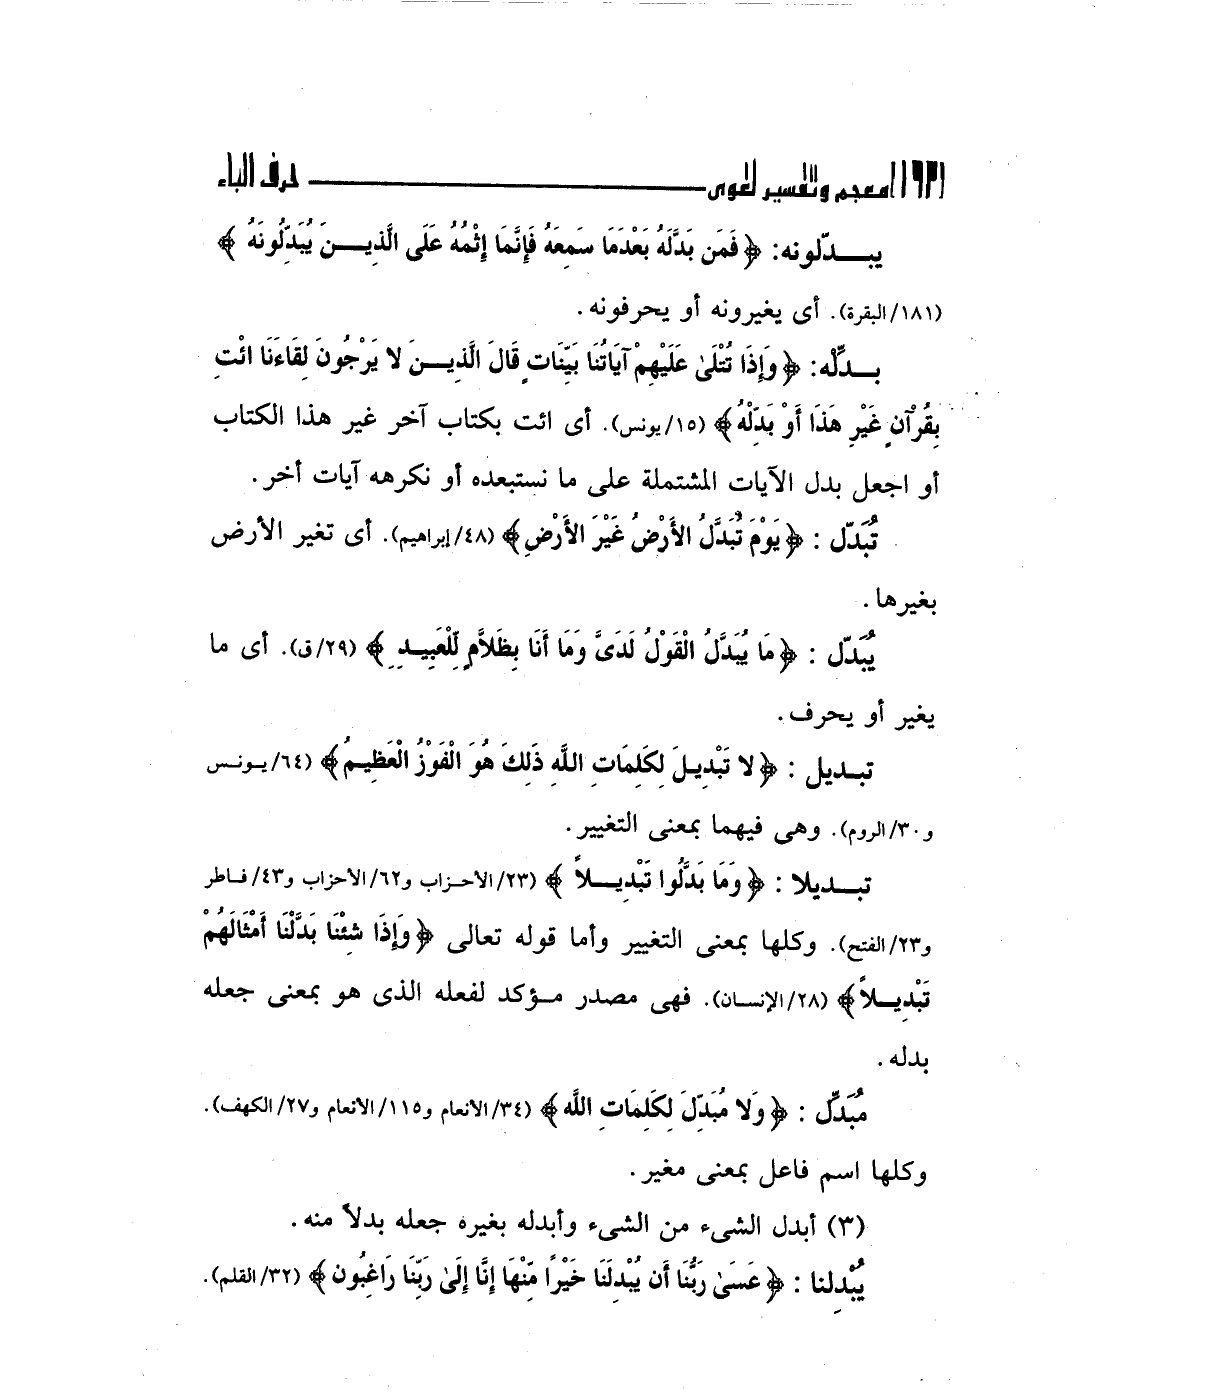 معجم وتفسير لغوى حرف الباء
يبـــدّلونه: ﴿ فَمَن بَدَّلَهُ بَعْدَمَا سَمِعَهُ فَإِنَّمَا إِثْمُهُ عَلَى الَّذِيـــنَ يُبَدِّلُونَهُ ﴾
(١٨١/البقرة). أى يغيرونه أو يحرفونه.
بـــدِّلْه: ﴿ وَإِذَا تُتْلَىٰ عَلَيْهِمْ آيَاتُنَا بَيِّنَاتٍ قَالَ الَّذِيـــنَ لا يَرْجُونَ لِقَاءَنَا ائْتِ
بِقُرْآنٍ غَيْرِ هَذَا أَوْ بَدِّلْهُ﴾ (١٥/يونس). أى ائت بكتاب آخر غير هذا الكتاب
أو اجعل بدل الآيات المشتملة على ما نستبعده أو نكرهه آيات أخر.
تُبَدّل : ﴿ يَوْمَ تُبَدَّلُ الأَرْضُ غَيْرَ الأَرْضِ﴾ (٤٨/إبراهيم). أى تغير الأرض
بغيرها.
يُبَدّل : ﴿ مَا يُبَدَّلُ الْقَوْلُ لَدَىَّ وَمَا أَنَا بِظَلاَّمٍ لِّلْعَبِيـدِ ﴾ (٢٩/ق). أى ما
يغير أو يحرف.
تبـديل : ﴿ لا تَبْدِيـلَ لِكَلِمَاتِ اللَّهِ ذَلِكَ هُوَ الْفَوْزُ الْعَظِيـمُ﴾ (٦٤/يـونـس
و٣٠/الروم). وهى فيهما بمعنى التغيير.
تبـــديلا : ﴿ وَمَا بَدَّلُوا تَبْدِيـــلاً ﴾ (٢٣/الأحـزاب و٦٢/الأحزاب و٤٣/فـاطر
و٢٣/الفتح). وكلها بمعنى التغيير وأما قوله تعالى ﴿ وَإِذَا شِئْنَا بَدَّلْنَا أَمْثَالَهُمْ
تَبْدِيــلاً﴾ (٢٨/الإنسـان). فهى مصدر مـؤكد لفعله الذى هو بمعنى جعله
بدله.
مُبَدِّل : ﴿ وَلا مُبَدِّلَ لِكَلِمَاتِ اللَّه﴾ (٣٤/الأنعام و١١٥/الأنعام و٢٧/الكهف).
وكلها اسم فاعل بمعنى مغير.
(٣) أبدل الشىء من الشىء وأبدله بغيره جعله بدلاً منه.
يُبْدِلنا : ﴿ عَسَىٰ رَبُّنَا أَن يُبْدِلَنَا خَيْرًا مِّنْهَا إِنَّا إِلَىٰ رَبِّنَا رَاغِبُون ﴾ (٣٢/القلم).